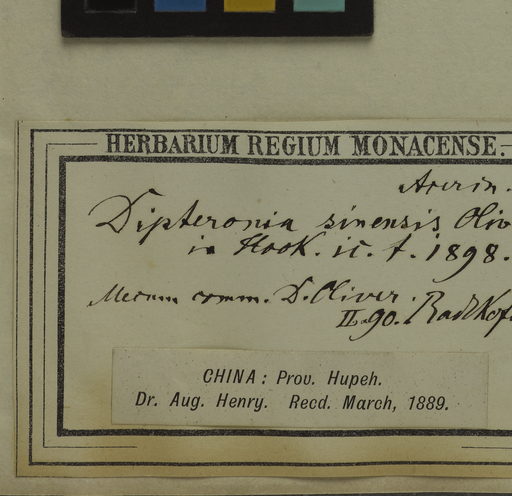 HERBARIUM REGIUM MONACENSE.
Acerin.
Dipteronia sinensis Oliv
in Hook. ic. t. 1898.
Mecum comm. D. Oliver.
II. 90. Radlkof.
CHINA: Prov. Hupeh.
Dr. Aug. Henry. Recd. March, 1889.